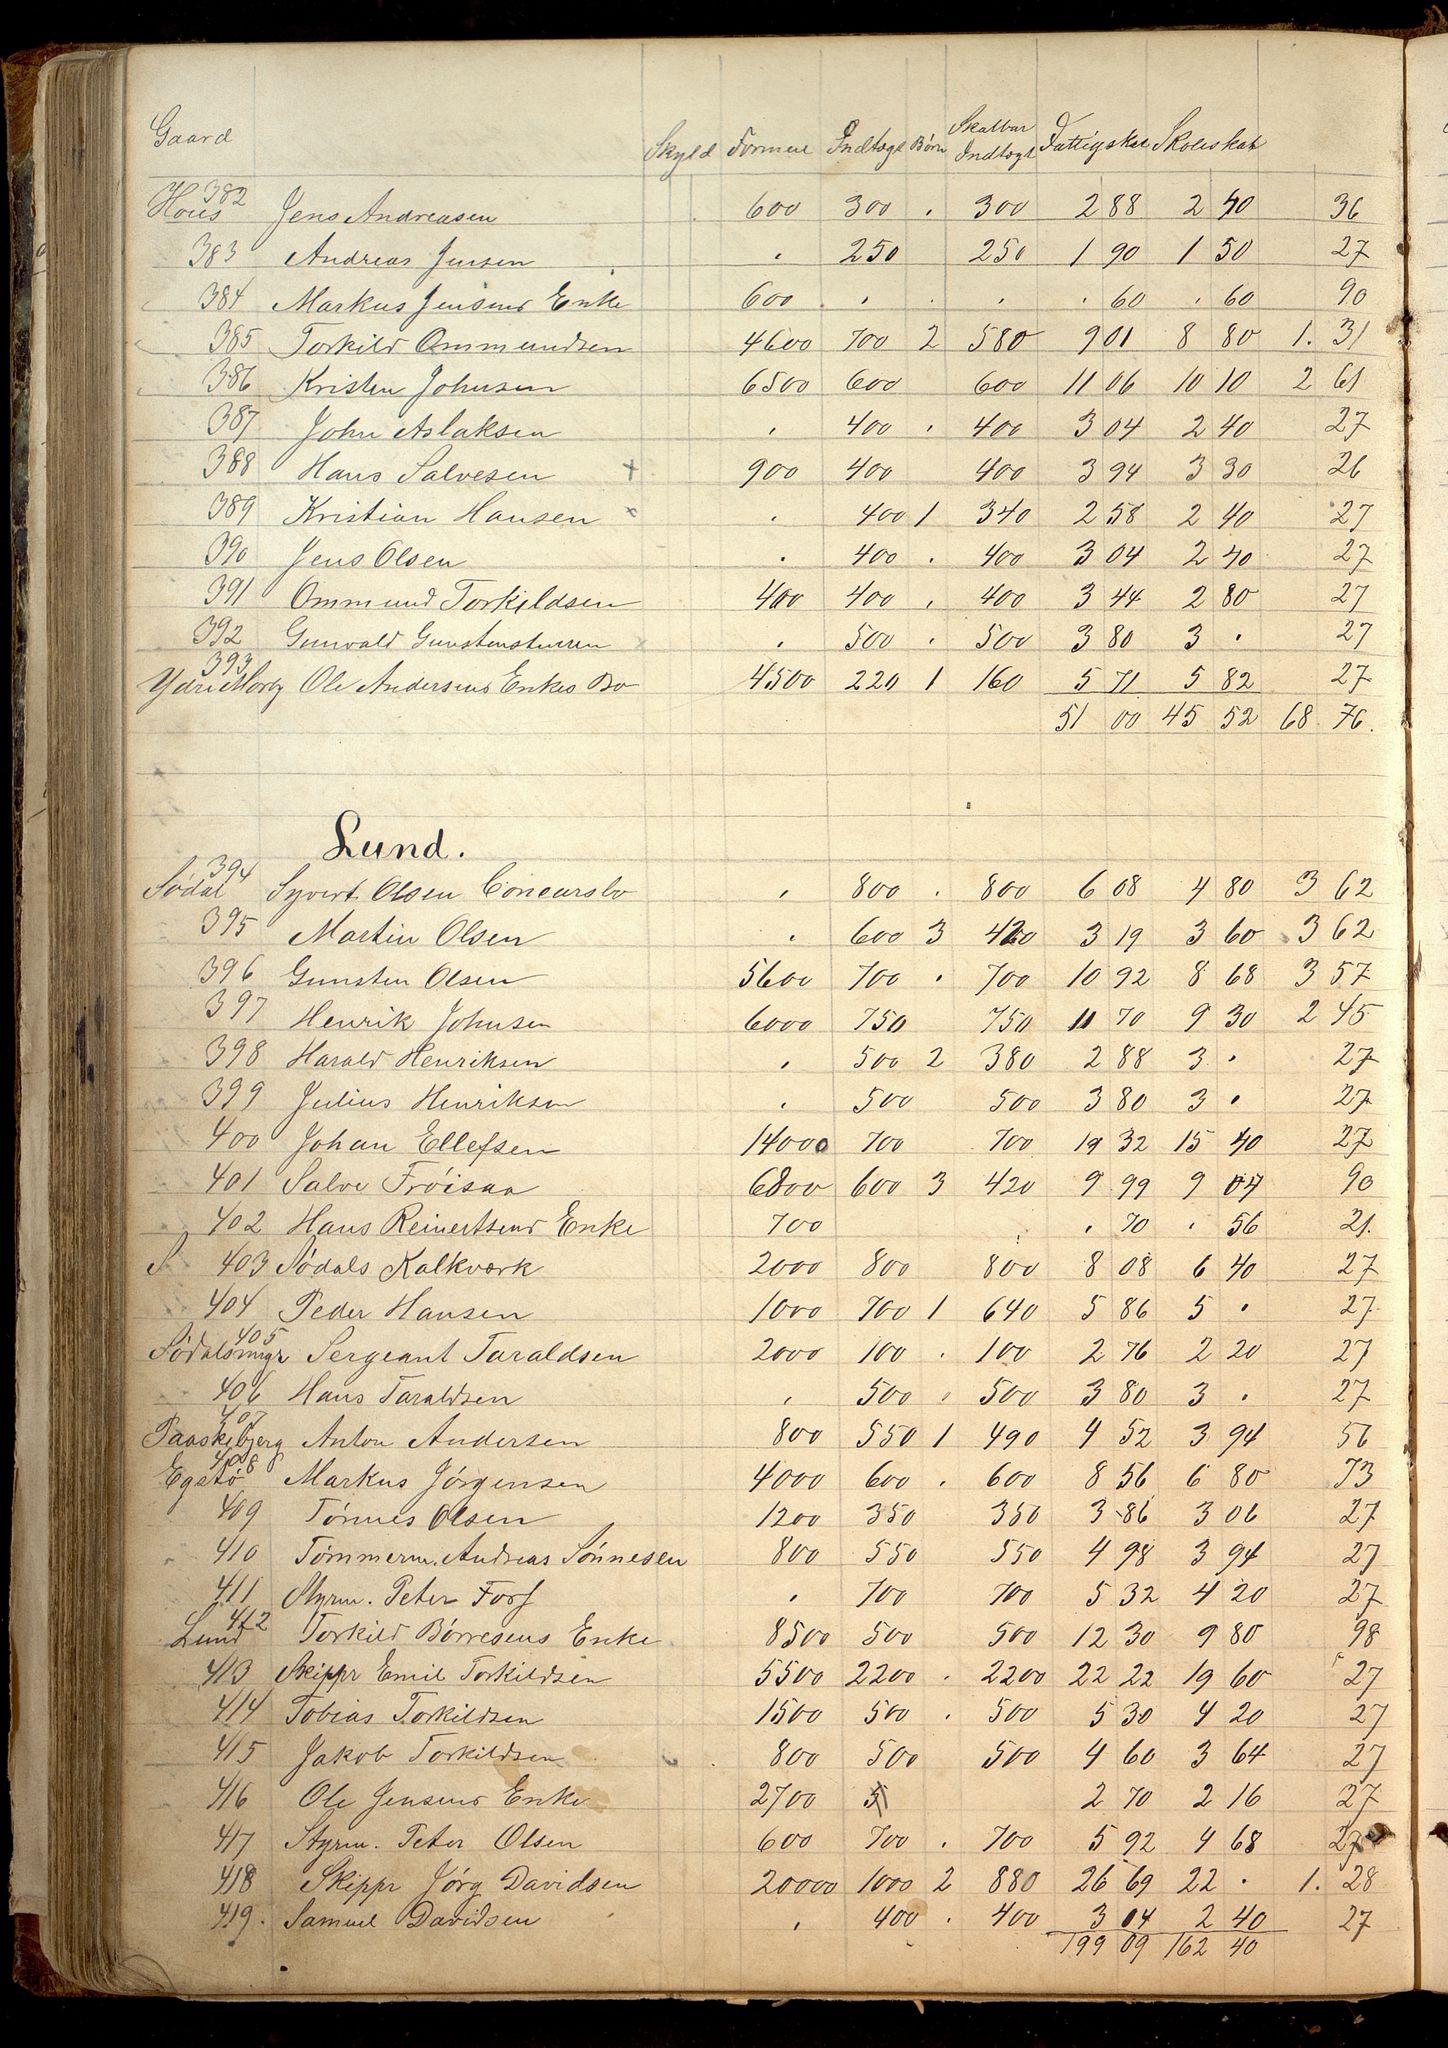 Gaard Skyld Formue Indtægt Børn Skatbar Indtægt Fattigskat Skoleskat
382 Hous Jens Andreasen 600 300 . 300 2 88 2 40 36
383 Andreas Jensen . 250 250 1 90 1 50 27
384 Markus Jensens Enke 600 . . . . 60 . 60 90
385 Torkild Ommundsen 4600 700 2 580 9 01 8 80 1. 31
386 Kristen Johnsen 6500 600 600 11 06 10 10 2 61
387 John Aslaksen . 400 . 400 3 04 2 40 27
388 Hans Salvesen + 900 400 400 3 94 3 30 26
389 Kristian Hansen x . 400 1 340 2 58 2 40 27
390 Jens Olsen . 400 . 400 3 04 2 40 27
391 Ommund Torkildsen 400 400 . 400 3 44 2 80 27
392 Gunvald . 500 . 500 3 80 3 . 27
393 Ole Andersens Enkes Bo 4500 220 1 160 5 71 5 82 27
51 00 45 52 68 76.
Lund.
394 Sødal Syvert Olsen Concursbo . 800 . 800 6 08 4 80 3 62
395 Martin Olsen . 600 3 420 3 19 3 60 3 62
396 Gunsten Olsen 5600 700 . 700 10 92 8 68 3 57
397 Henrik Johnsen 6000 750 750 11 70 9 30 2 45
398 Harald Henriksen . 500 2 380 2 88 3 . 27
399 Julius Henriksen . 500 500 3 80 3 . 27
400 Johan Ellefsen 14000 700 700 19 32 15 40 27
401 Salve Frøisaa 6800 600 3 420 9 99 9 04 90
402 Hans Reinertsens Enke 700 . 70 . 56 21.
S 403 Sødals Kalkværk 2000 800 800 8 08 6 40 27
404 Peder Hansen 1000 700 1 640 5 86 5 . 27
405 Sødalsmyr Sergeant Taraldsen 2000 100 . 100 2 76 2 20 27
406 Hans Taraldsen . 500 . 500 3 80 3 . 27
407 Paaskebjerg Anton Andersen 800 550 1 490 4 52 3 94 56
408 Egstø Markus Jørgensen 4000 600 . 600 8 56 6 80 73
409 Tønnes Olsen 1200 350 350 3 86 3 06 27
410 Tømmerm. Andreas Sønnesen 800 550 550 4 98 3 94 27
411 Styrm. Peter Fors . 700 700 5 32 4 20 27
412 Lund Torkild Børresens Enke 8500 500 500 12 30 9 80 98
413 Skippr Emil Torkildsen 5500 2200 . 2200 22 22 19 60 27
414 Tobias Torkildsen 1500 500 . 500 5 30 4 20 27
415 Jakob Torkildsen 800 500 500 4 60 3 64 27
416 Ole Jensens Enke 2700 2 70 2 16 27
417 Styrm. Peter Olsen 600 700 . 700 5 92 4 68 27
418 Skippr Jørg Davidsen 20000 1000 2 880 26 69 22 . 1. 28
419. Samuel Davidsen . 400 . 400 3 04 2 40 27
199 09 162 40